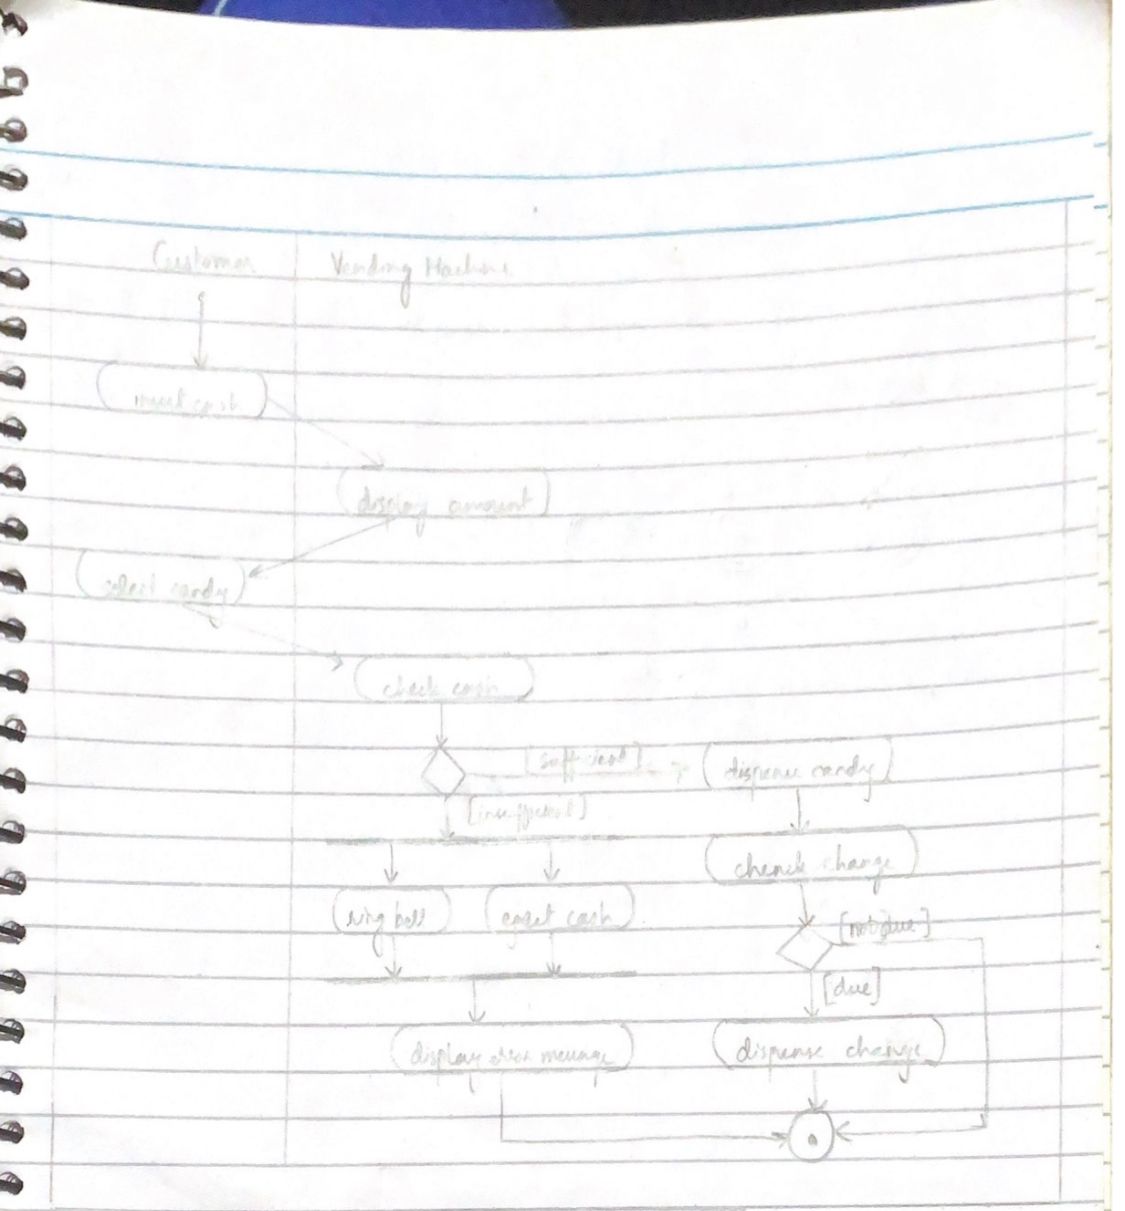 Customer
Vending Machine
insert cash
display amount
select candy
check cash
[sufficient]
dispense candy
[insufficient]
cheack change
ring bell
eject cash
[not due]
[due]
display error message
dispense change